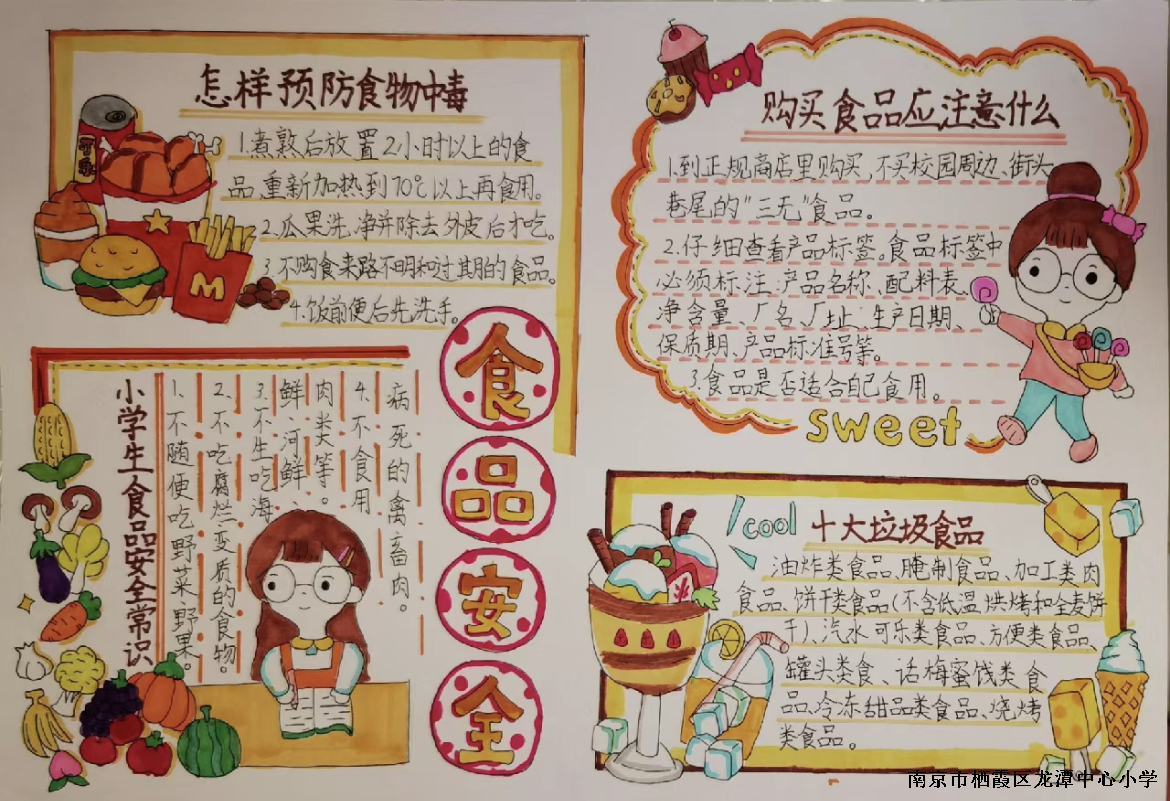 怎样预防食物中毒
可乐
1.煮熟后放置2小时以上的食
品,重新加热到70℃以上再食用。
2.瓜果洗净并除去外皮后才吃。
3.不购食来路不明和过期的食品。
4.饭前便后先洗手。
M
购买食品应注意什么
1.到正规商店里购买,不买校园周边、街头
巷尾的“三无”食品。
2.仔细查看产品标签。食品标签中
必须标注:产品名称、配料表、
净含量、厂名、厂址、生产日期、
保质期、产品标准号等。
3.食品是否适合自己食用。
sweet
食
品
安
全
小学生食品安全常识
1、不随便吃野菜野果。
2、不吃腐烂变质的食物。
3、不生吃海
鲜、河鲜、
肉类等。
4、不食用
病死的禽畜肉。
cool
十大垃圾食品
油炸类食品、腌制食品、加工类肉
食品、饼干类食品(不含低温烘烤和全麦饼
干)、汽水可乐类食品、方便类食品、
罐头类食、话梅蜜饯类食
品、冷冻甜品类食品、烧烤
类食品。
南京市栖霞区龙潭中心小学